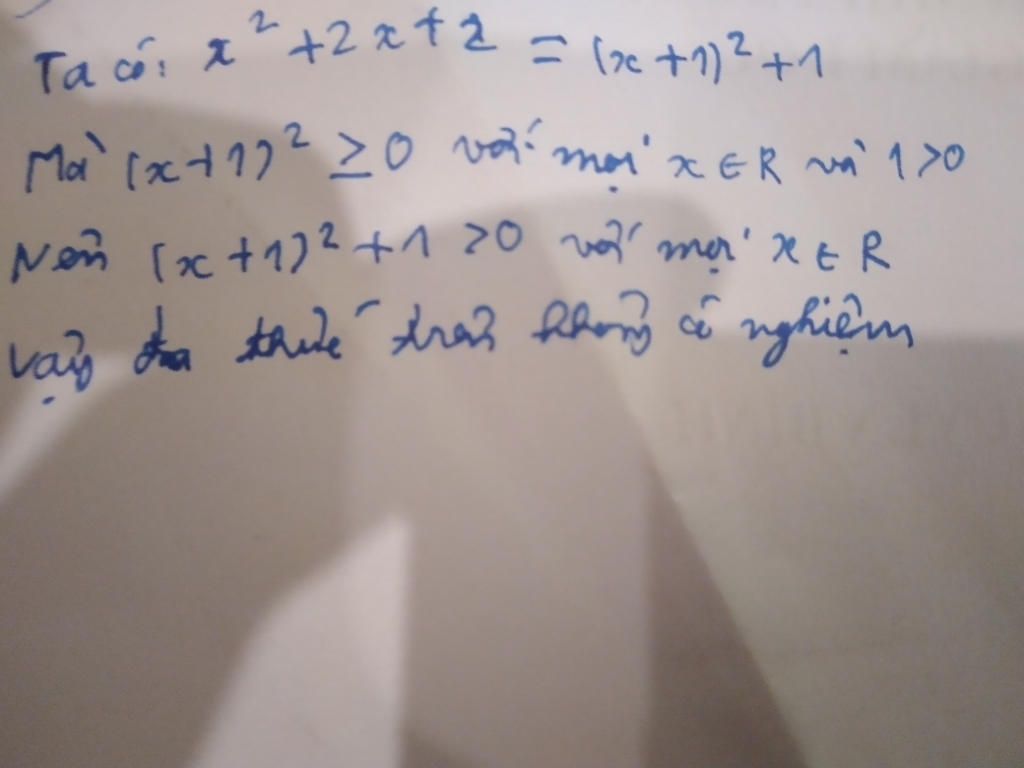 Ta có: x² + 2x + 2 = (x + 1)² + 1
Mà (x + 1)² ≥ 0 với mọi x ∈ R và 1 > 0
Nên (x + 1)² + 1 > 0 với mọi x ∈ R
Vậy đa thức trên không có nghiệm